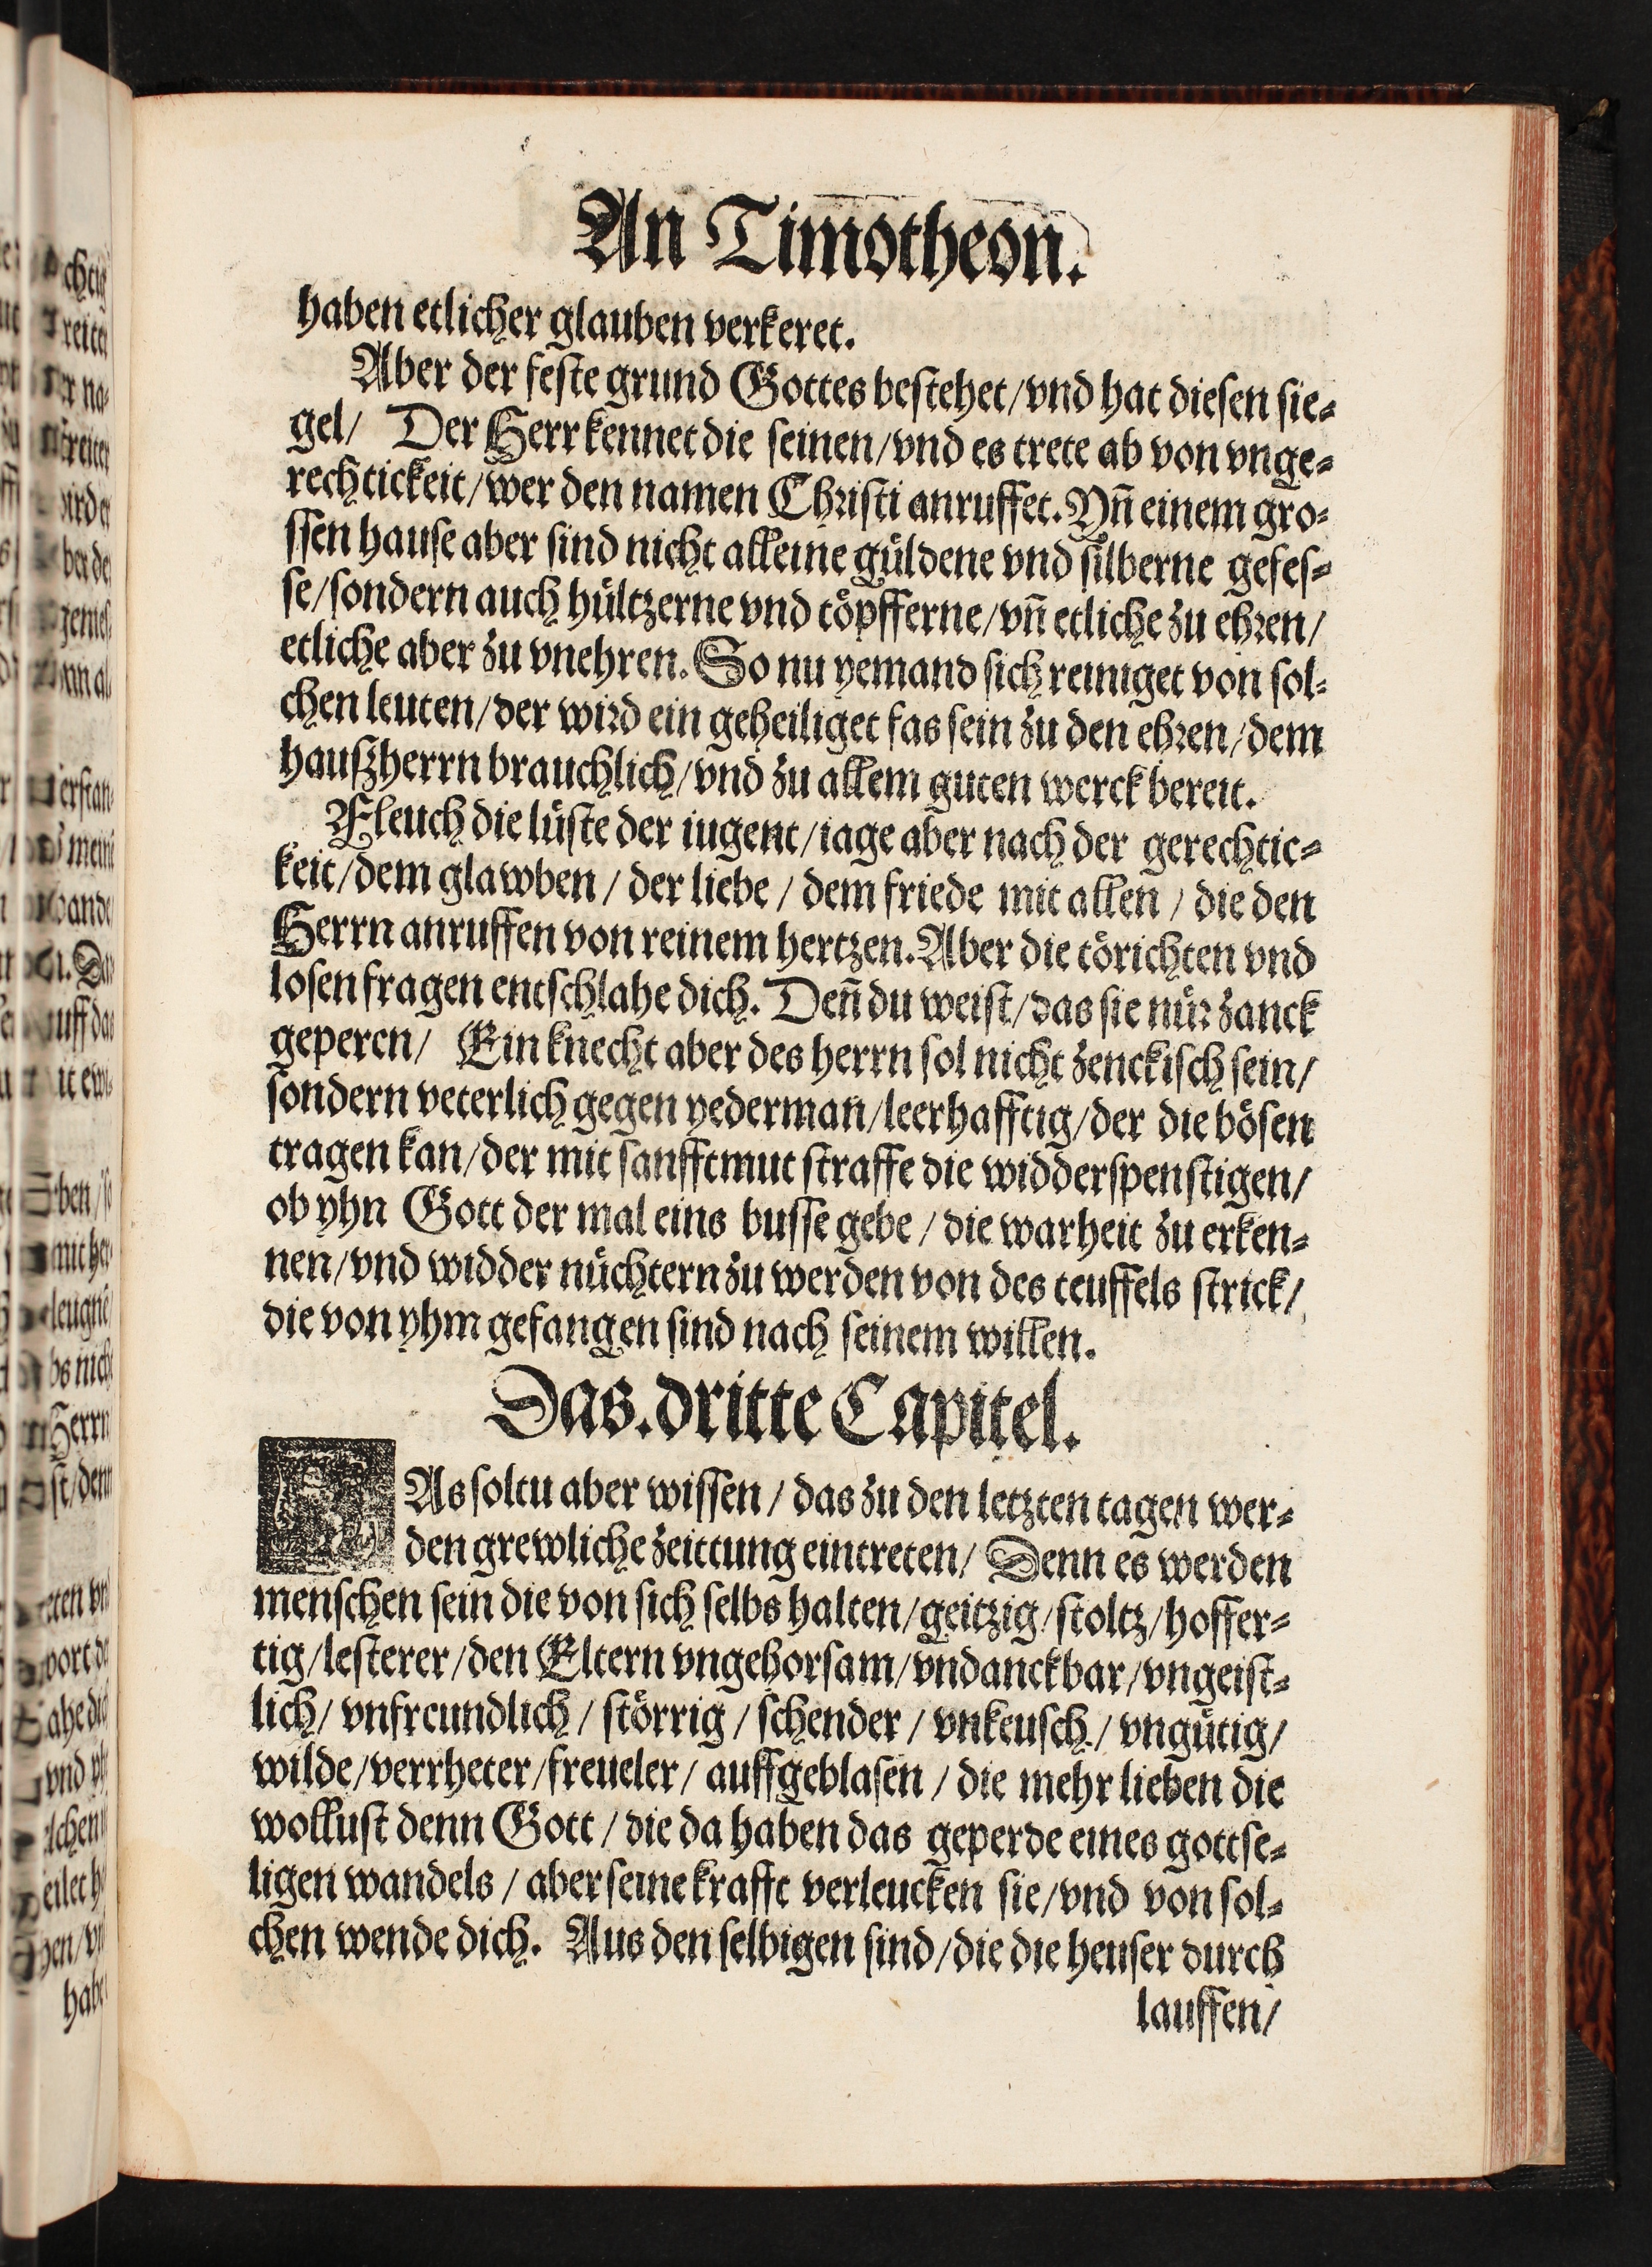 An Timotheon.
haben etlicher glauben verkeret.
Aber der feste grund Gottes bestehet/vnd hat diesen sie⸗
gel/ Der Herr kennet die seinen/vnd es trete ab von vnge⸗
rechtickeit/wer den namen Christi anruffet. Yñ einem gro⸗
ssen hause aber sind nicht alleine güldene vnd silberne gefes⸗
se/sondern auch hültzerne vnd töpfferne/vñ etliche zu ehren/
etliche aber zu vnehren. So nu yemand sich reiniget von sol⸗
chen leuten/der wird ein geheiliget fas sein zu den ehren/dem
haußherrn brauchlich/vnd zu allem guten werck bereit.
Fleuch die lüste der iugent/iage aber nach der gerechtic⸗
keit/dem glawben/ der liebe/ dem friede mit allen/ die den
Herrn anruffen von reinem hertzen. Aber die törichten vnd
losen fragen entschlahe dich. Deñ du weist/das sie nür zanck
geperen/ Ein knecht aber des herrn sol nicht zenckisch sein/
sondern veterlich gegen yederman/leerhafftig/der die bösen
tragen kan/der mit sanfftmut straffe die widderspenstigen/
ob yhn Gott der mal eins busse gebe/ die warheit zu erken⸗
nen/vnd widder nüchtern zu werden von des teuffels strick/
die von yhm gefangen sind nach seinem willen.
Das. dritte Capitel.
DAs soltu aber wissen/ das zu den letzten tagen wer⸗
den grewliche zeittung eintreten/ Denn es werden
menschen sein die von sich selbs halten/geitzig/stoltz/hoffer⸗
tig/lesterer/den Eltern vngehorsam/vndanckbar/vngeist⸗
lich/ vnfreundlich/ störrig/ schender/ vnkeusch/ vngütig/
wilde/verrheter/freueler/ auffgeblasen/ die mehr lieben die
wollust denn Gott/ die da haben das geperde eines gottse⸗
ligen wandels/ aber seine krafft verleucken sie/vnd von sol⸗
chen wende dich. Aus den selbigen sind/die die heuser durch
lauffen/